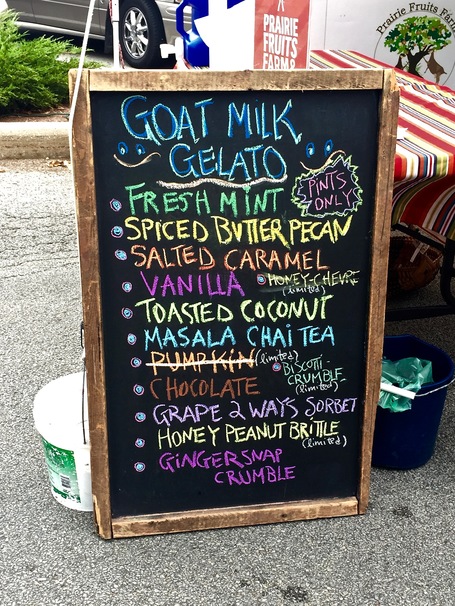 PRAIRIE
FRUITS
FARM &
Prairie Fruits Farm
GOAT MILK
GELATO
PINTS
ONLY
FRESH MINT
SPICED BUTTER PECAN
SALTED CARAMEL
VANILLA
HONEY-CHEVRE
(limited)
TOASTED COCONUT
MASALA CHAI TEA
PUMPKIN (limited)
BISCOTTI-
CRUMBLE
(limited)
CHOCOLATE
GRAPE 2 WAYS SORBET
HONEY PEANUT BRITTLE
(limited)
GINGERSNAP
CRUMBLE